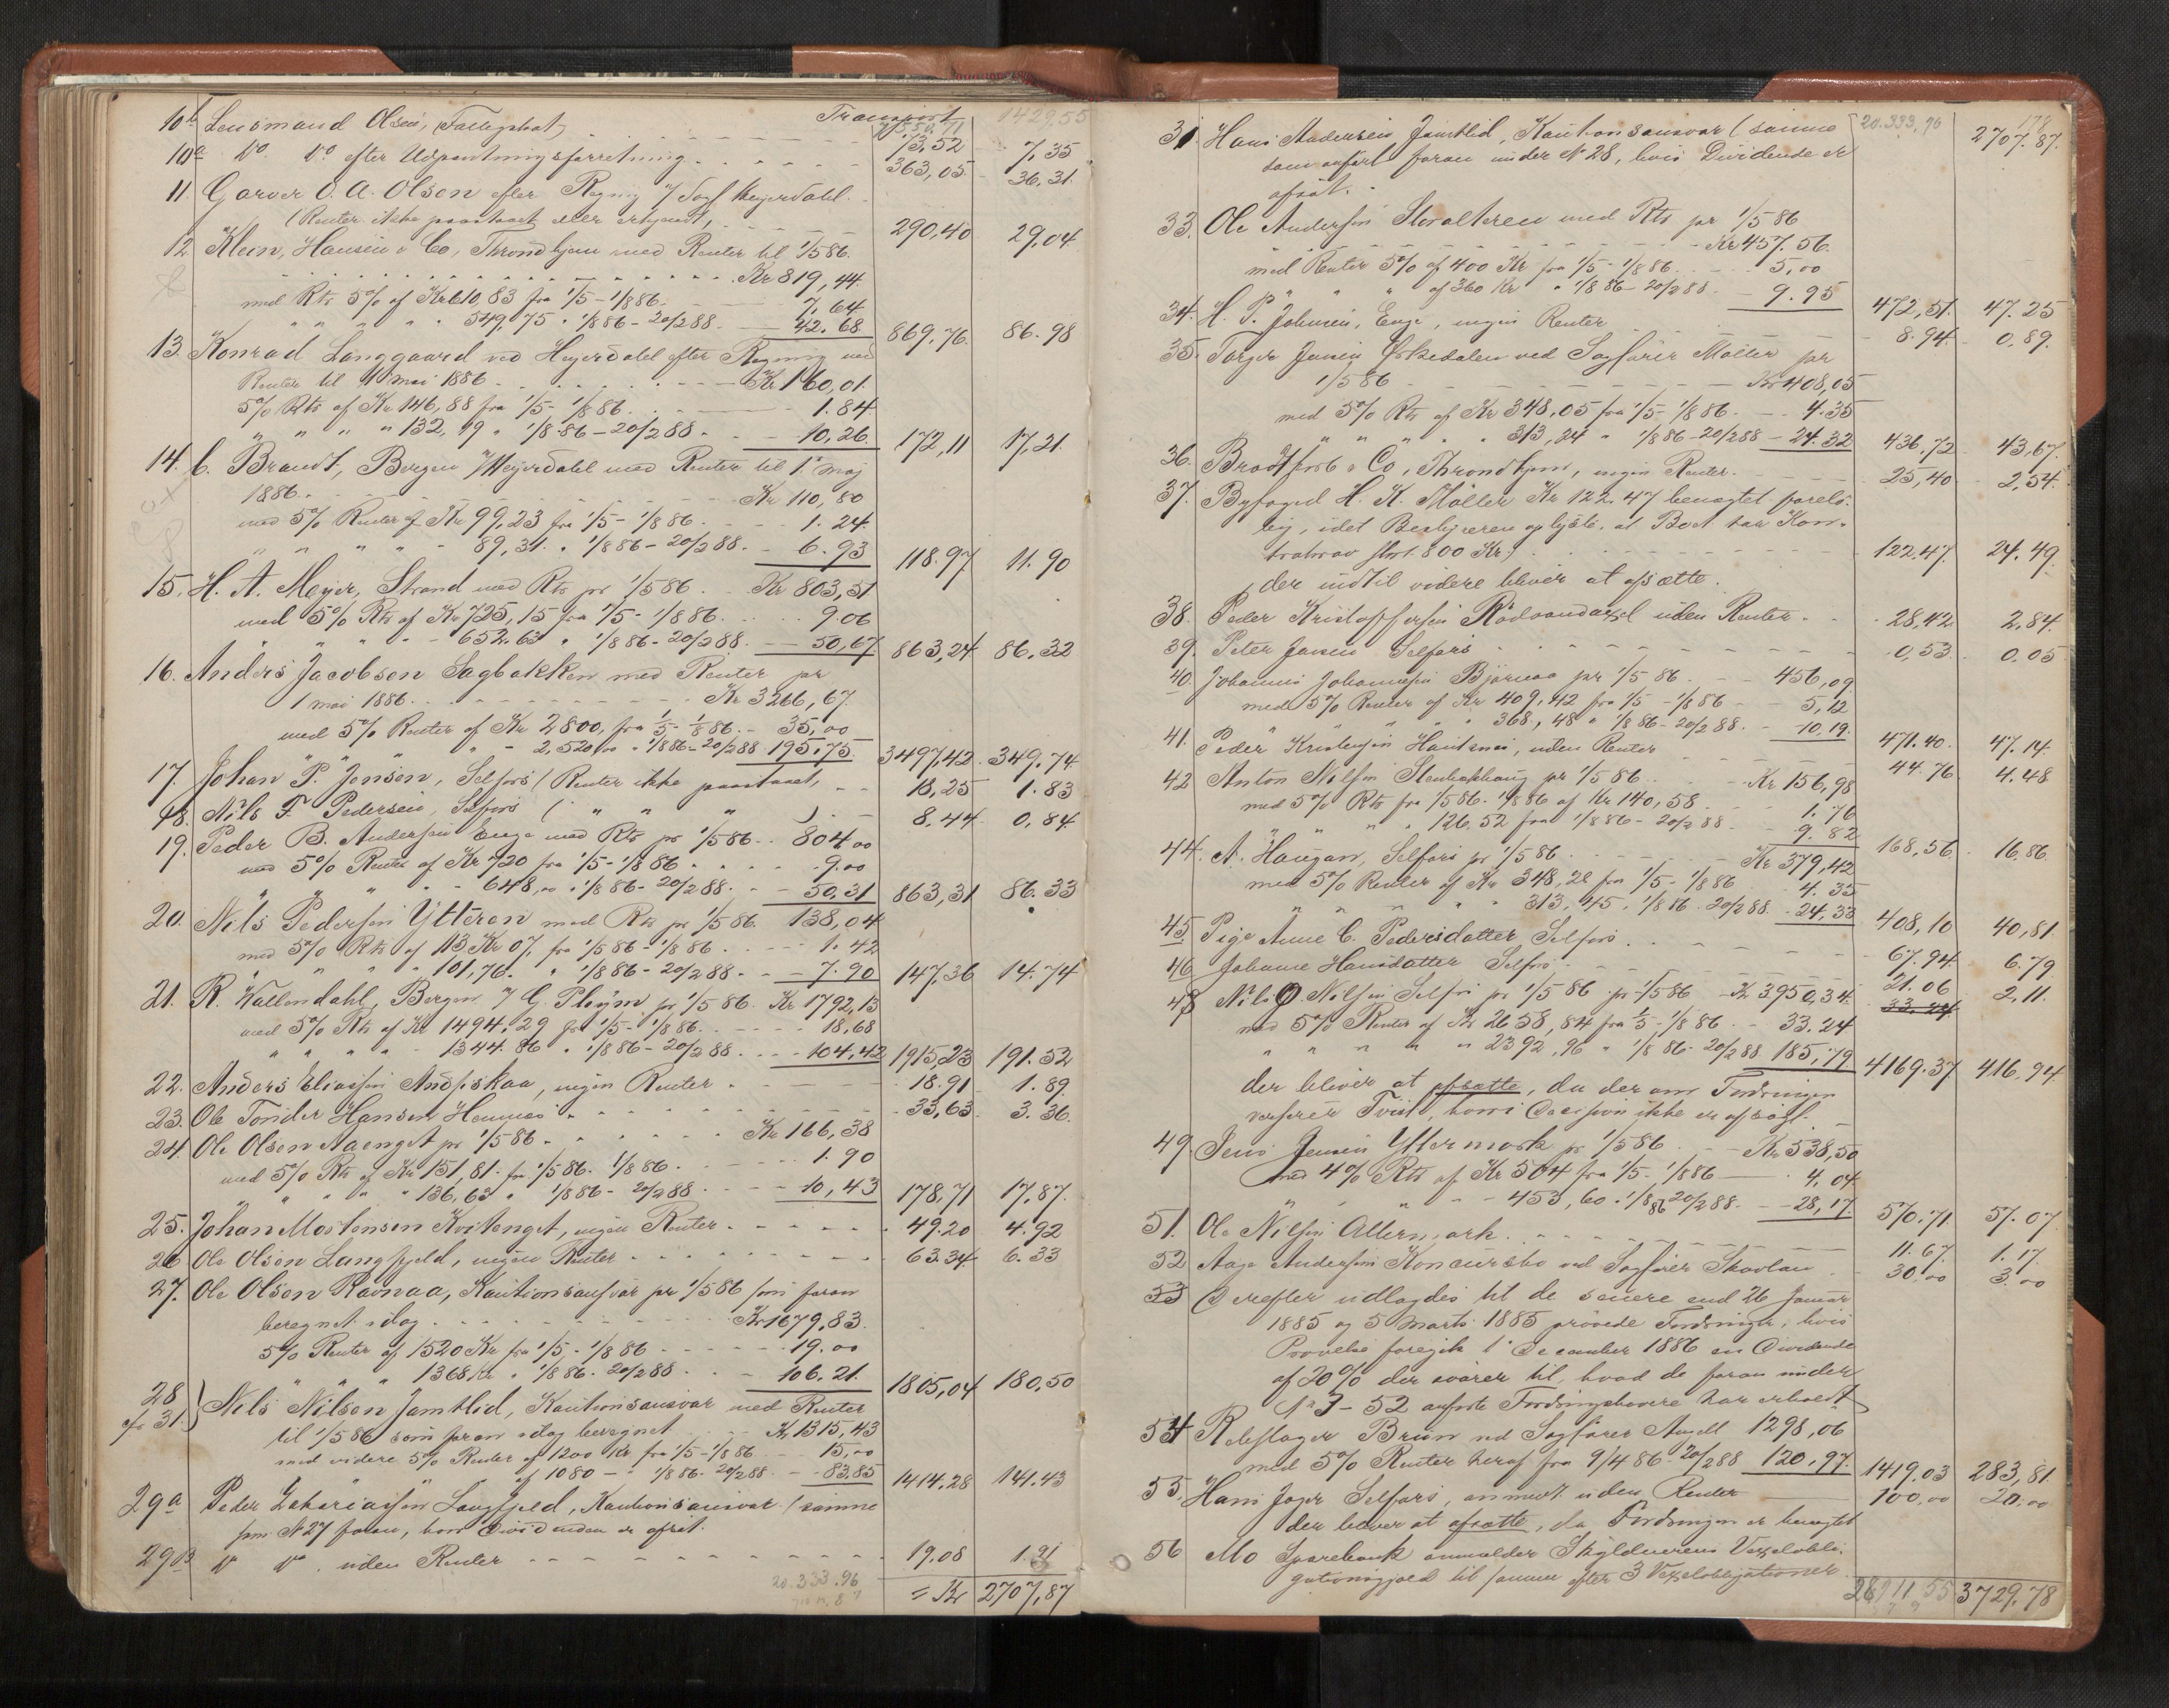 Transport 1429,55
7550,71
10b Lensmand Olsen, Faldgsbot 73,52 7,35
10a Do Do efter Udpantningsforretning 363,05 36,31
11. Garver O. A. Olson efter Regning v/ Sagf. Heyerdahl
(Renter ikke paastaaet eller erkjendt, 290,40 29,04
12. Klein, Hansen & Co, Throndhjem med Renter til 1/5 86.
Kr 819,44
med Rts 5% af Kr 610,83 fra 1/5 - 1/8 86. 7,64
" " " " 549,75 " 1/8 86 - 20/2 88. 42.68 869,76. 86.98
13. Konrad Langgaard ved Heyerdahl efter Regning med
Renter til 1 mai 1886 Kr 160,01.
5% Rts af Kr 146,88 fra 1/5 - 1/8 86. 1.84
" " " " 132,19 " 1/8 86 - 20/2 88. 10,26 172,11 17,21.
14. C. Brandt, Bergen v/ Heyerdahl med Renter til 1. maj
1886. Kr 110,80
med 5% Renter af Kr 99,23 fra 1/5 - 1/8 86. 1.24
" " " " 89,31. " 1/8 86 - 20/2 88. 6.93 118.97 11.90
15. H. A. Meyer, Strand med Rts pr 1/5 86. Kr 803,51
med 5% Rts af Kr 725,15 fra 1/5 - 1/8 86. 9.06
" " " 652.63 " 1/8 86 - 20/2 88. 50,67 863,24 86.32
16. Anders Jacobson Sagbakken med Renter pr
1 mai 1886. Kr 3266,67.
med 5% Renter af Kr 2800, fra 1/5 - 1/8 86. 35,00
" " " 2,520 00 " 1/8 86 - 20/2 88 195.75. 3497,42 349,74
17. Johan P. Jensen, Selfors (Renter ikke paastaaet, 18,25 1.83
18. Nils F. Pedersen, Selfors ( " " " ) 8,44 0,84
19. Peder B. Andersen Enge med Rts pr 1/5 86. 804 00
med 5% Renter af Kr 720 fra 1/5 - 1/8 86 9.00
" " " 648,00 " 1/8 86 - 20/2 88. 50,31 863,31 86.33
20. Nils Pedersen Ytteren med Rts pr 1/5 86. 138,04
med 5% Rts af 113 Kr 07, fra 1/5 86 - 1/8 86. 1.42
" " " 101,76. " 1/8 86 - 20/2 88. 7.90 147,36 14.74
21. R. Wallendahl, Bergen v/ G. Pleym pr 1/5 86. Kr 1792,13
med 5% Rts af Kr 1494,29 fra 1/5 - 1/8 86. 18,68
" " " " 1344.86 " 1/8 86 - 20/2 88. 104,42 1915,23 191.52
22. Anders Eliassen Andfiskaa, ingen Renter. 18.91 1.89
23. Ole Tønder Hansen Hemnes 33,63 3.36.
24. Ole Olsen Aaenget pr 1/5 86. Kr 166,38
med 5% Rts af Kr 151,81. fra 1/5 86. 1/8 86. 1.90
" " " " 136,63 " 1/8 86 - 20/2 88. 10,43 178,71 17,87.
25. Johan Mortensen Kvitenget, ingen Renter. 49.20 4.92
26 Ole Olsen Langfjeld, ingen Renter 63.34 6.33
27. Ole Olsen Ravnaa, Kautionsansvar pr 1/5 86 som foran
beregnet idag Kr 1679,83.
5% Renter af 1520 Kr fra 1/5 - 1/8 86 19.00
" " " 1368 Kr " 1/8 86 - 20/2 88 106.21. 1805,04 180,50
28
cfr 31. } Nils Nilsen Jamtlid, Kautionsansvar med Renter
til 1/5 86 som foran idag beregnet Kr 1315,43
med videre 5% Renter af 1200 Kr fra 1/5 - 1/8 86 15,00
" " af 1080 " 1/8 86 - 20/2 88 83.85 1414,28 141.43
29a Peder Zakariassen Langfjeld, Kautionsansvar (samme
som N 27 foran, hvis Dividenden er afsat.
29b Do Do. uden Renter 19.08 1.91
20.333.96
= Kr 2707,87
20.333,96 2707.87.
31 Hans Andersen Jamtlid, Kautionsansvar (samme
som anført foran under N 28, hvis Dividende er
afsat.
33. Ole Andersen Storalteren med Rts pr 1/5 86
Kr 457.56.
med Renter 5% af 400 Kr fra 1/5 - 1/8 86. 5,00
" " " af 360 Kr " 1/8 86 - 20/2 88. 9.95 472,51. 47.25
34. H. P. Johnsen, Enge, ingen Renter 8.94 0,89.
35. Torger Jansen Eskedalen ved Sagfører Møller pr
1/5 86 Kr 408,05
med 5% Rts af Kr 348,05 fra 1/5 - 1/8 86. 4.35
" " " " 313,24 " 1/8 86 - 20/2 88 24.32 436,72 43,67.
36. Brodtkorb & Co, Throndhjem, ingen Renter. 25,40 2,54.
37. Byfoged H. K. Møller Kr 122,47 benægtet forelø-
big, idet Bestyreren oplyste, at Boet har Kon-
trakrav stort 800 Kr.) 122.47. 24.49.
der indtil videre bliver at afsætte.
38. Peder Kristoffersen Rødvandaxel uden Renter. 28,42 2,84.
39. Peter Jansen Selfors 0,53 0,05
40 Johannes Johannesen Bjørnaa pr 1/5 86. 456,09
med 5% Renter af Kr 409,42 fra 1/5 - 1/8 86 5,12
" " " 368,48 " 1/8 86 - 20/2 88. 10.19. 471.40. 47.14.
41. Peder Kristensen Hauknes, uden Renter 44.76 4.48
42 Anton Nilsen Stenhakhaug pr 1/5 86. Kr 156,98
med 5% Rts fra 1/5 86 - 1/8 86 af Kr 140,58 1.76
" " " " 126,52 fra 1/8 86 - 20/2 88 9.82 168,56 16,86.
44. A. Haugan, Selfors pr 1/5 86. Kr 379,42
med 5% Renter af Kr 348,28 fra 1/5 - 1/8 86 4.35
" " " " 313,45. 1/8 86. 20/2 88. 24,33 408,10 40,81
45. Pige Anne C. Pedersdatter Selfors. 67.94 6.79
46 Johanne Hansdatter Selfors 21.06 2,11.
48 Nils O Nilsen Selfors pr 1/5 86 pr 1/5 86 Kr 3950,34. 33.24
med 5% Renter af Kr 2658,84 fra 1/5 - 1/8 86 33.24
" " " " 2392,96 " 1/8 86 - 20/2 88 185,79 4169.37 416.94
der bliver at afsætte, da der om Fordringen
verserer Tvist, hvori Decision ikke er afsagt.
49. Jens Jensen Yttermork pr 1/5 86 Kr 538,50
med 4% Rts af Kr 504 fra 1/5 - 1/8 86 4,04
" " " 453,60 " 1/8 86 20/2 88. 28,17. 570.71. 57.07.
51. Ole Nilsen Altermark. 11.67. 1.17.
52 Aage Andersens Konkursbo ved Sagfører Skavlan 30,00 3.00
53 Derefter udlagdes til de senere end 26 Januar
1885 og 5 Marts 1885 prøvede Fordringer, hvis
Prøvelse foregik 1 December 1886 en Dividende
af 20% der svarer til, hvad de foran under
N 3 - 52 anførte Fordringshavere har erholdt
54 Rebslager Bruun ved Sagfører Angell 1298,06
med 5% Renter heraf fra 9/4 86 - 20/2 88 120,97. 1419.03 283,81.
55. Hans Jager Selfors, anmeldt uden Renter 100,00 20.00
der bliver at afsætte, da Fordringen er benægtet
56 Mo Sparebank anmelder Skyldnerens Vexelobli-
gationsgjæld til samme efter 3 Vexelobligationer.
28911 55 3729,78